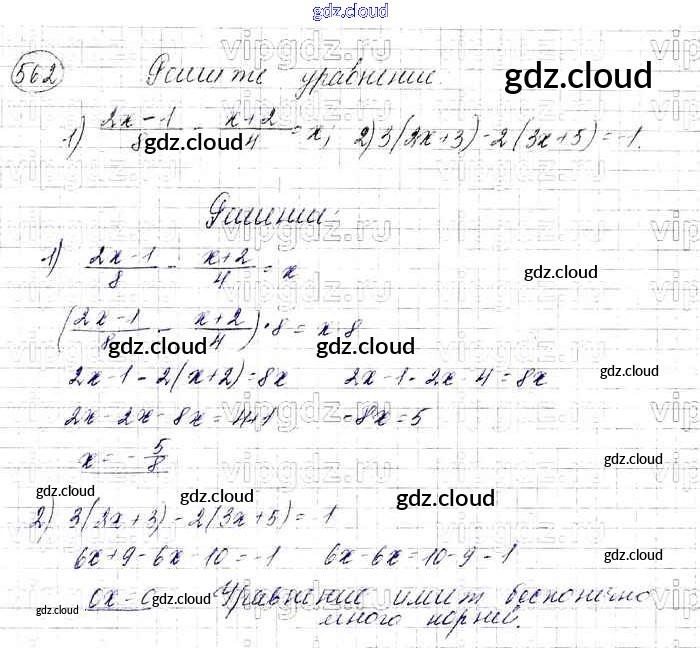 gdz.cloud
562 Решите уравнение. gdz.cloud
1) (2x-1)/8 - (x+2)/4 = x, 2) 3(2x+3)-2(3x+5)=-1.
gdz.cloud
Решение:
1) (2x-1)/8 - (x+2)/4 = x
gdz.cloud
((2x-1)/8 - (x+2)/4)·8 = x·8
gdz.cloud gdz.cloud
2x-1-2(x+2)=8x 2x-1-2x-4=8x
gdz.cloud
2x-2x-8x=4+1 -8x=5
x=-5/8
gdz.cloud
gdz.cloud gdz.cloud gdz.cloud
2) 3(2x+3)-2(3x+5)=-1
6x+9-6x-10=-1 6x-6x=10-9-1
gdz.cloud
0x=0 Уравнение имеет бесконечно
gdz.cloud gdz.cloud
много корней.
vipgdz.ru